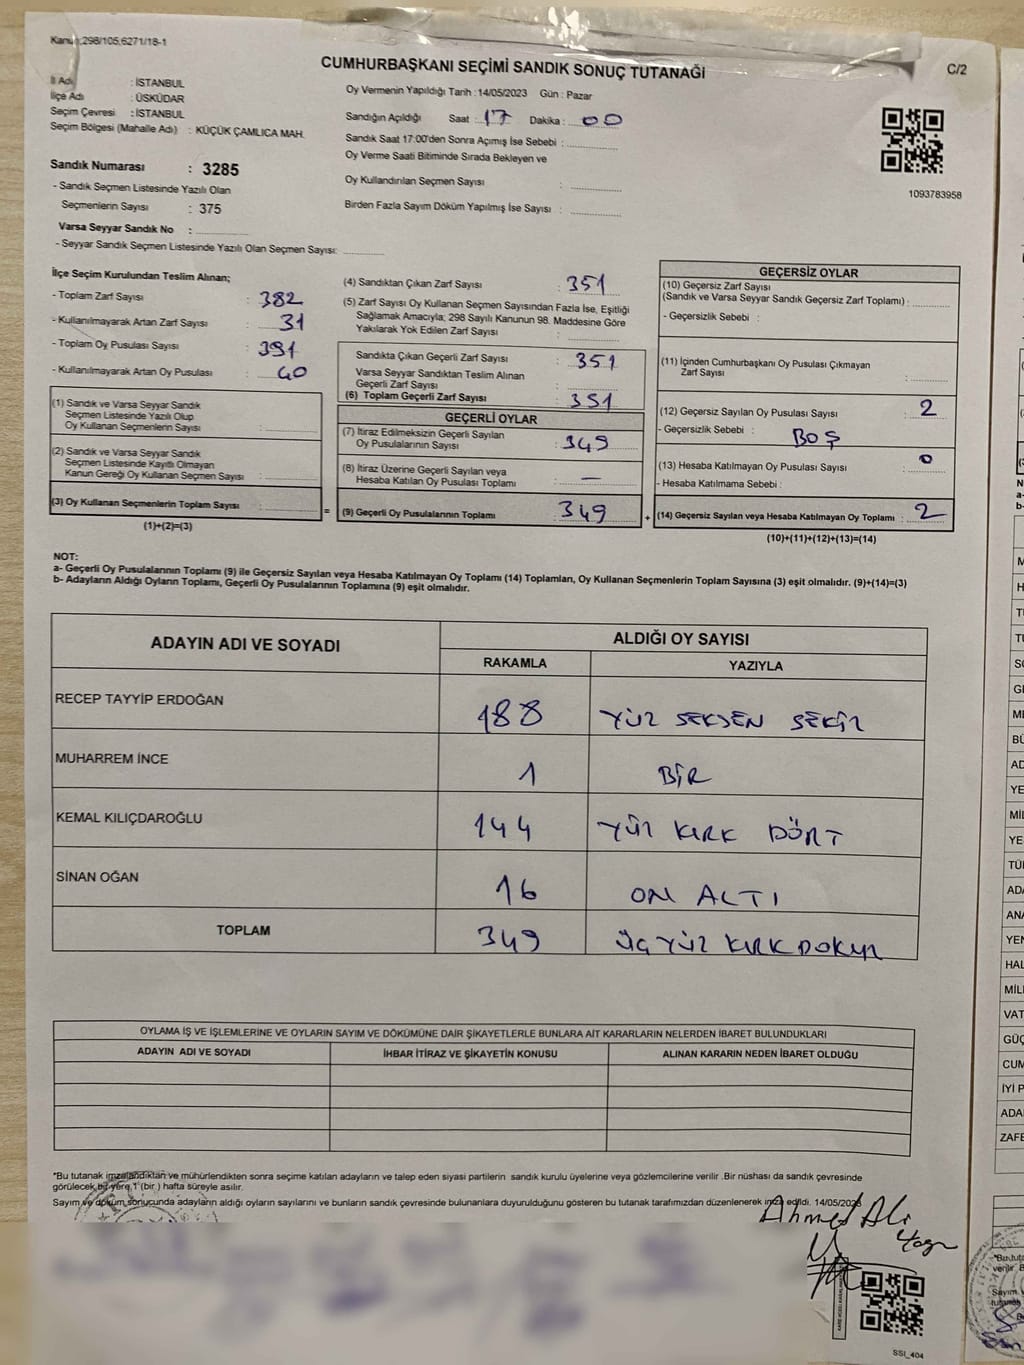 Kanun:298/105,6271/18-1
CUMHURBAŞKANI SEÇİMİ SANDIK SONUÇ TUTANAĞI
C/2
İl Adı : İSTANBUL
İlçe Adı : ÜSKÜDAR
Seçim Çevresi : İSTANBUL
Seçim Bölgesi (Mahalle Adı) : KÜÇÜK ÇAMLICA MAH.
Sandık Numarası : 3285
- Sandık Seçmen Listesinde Yazılı Olan
Seçmenlerin Sayısı : 375
Varsa Seyyar Sandık No :
- Seyyar Sandık Seçmen Listesinde Yazılı Olan Seçmen Sayısı:
Oy Vermenin Yapıldığı Tarih : 14/05/2023 Gün : Pazar
Sandığın Açıldığı Saat : 17 Dakika : 00
Sandık Saat 17:00'den Sonra Açımış İse Sebebi :
Oy Verme Saati Bitiminde Sırada Bekleyen ve
Oy Kullandırılan Seçmen Sayısı :
Birden Fazla Sayım Döküm Yapılmış İse Sayısı :
1093783958
İlçe Seçim Kurulundan Teslim Alınan;
- Toplam Zarf Sayısı : 382
- Kullanılmayarak Artan Zarf Sayısı : 31
- Toplam Oy Pusulası Sayısı : 391
- Kullanılmayarak Artan Oy Pusulası : 40
(1) Sandık ve Varsa Seyyar Sandık
Seçmen Listesinde Yazılı Olup
Oy Kullanan Seçmenlerin Sayısı :
(2) Sandık ve Varsa Seyyar Sandık
Seçmen Listesinde Kayıtlı Olmayan
Kanun Gereği Oy Kullanan Seçmen Sayısı :
(3) Oy Kullanan Seçmenlerin Toplam Sayısı :
(1)+(2)=(3)
=
(4) Sandıktan Çıkan Zarf Sayısı : 351
(5) Zarf Sayısı Oy Kullanan Seçmen Sayısından Fazla İse, Eşitliği
Sağlamak Amacıyla; 298 Sayılı Kanunun 98. Maddesine Göre
Yakılarak Yok Edilen Zarf Sayısı :
Sandıkta Çıkan Geçerli Zarf Sayısı : 351
Varsa Seyyar Sandıktan Teslim Alınan
Geçerli Zarf Sayısı :
(6) Toplam Geçerli Zarf Sayısı : 351
GEÇERLİ OYLAR
(7) İtiraz Edilmeksizin Geçerli Sayılan
Oy Pusulalarının Sayısı : 349
(8) İtiraz Üzerine Geçerli Sayılan veya
Hesaba Katılan Oy Pusulası Toplamı : —
(9) Geçerli Oy Pusulalarının Toplamı : 349
+
GEÇERSİZ OYLAR
(10) Geçersiz Zarf Sayısı
(Sandık ve Varsa Seyyar Sandık Geçersiz Zarf Toplamı) :
- Geçersizlik Sebebi :
(11) İçinden Cumhurbaşkanı Oy Pusulası Çıkmayan
Zarf Sayısı :
(12) Geçersiz Sayılan Oy Pusulası Sayısı : 2
- Geçersizlik Sebebi : BOŞ
(13) Hesaba Katılmayan Oy Pusulası Sayısı : 0
- Hesaba Katılmama Sebebi :
(14) Geçersiz Sayılan veya Hesaba Katılmayan Oy Toplamı : 2
(10)+(11)+(12)+(13)=(14)
NOT:
a- Geçerli Oy Pusulalarının Toplamı (9) ile Geçersiz Sayılan veya Hesaba Katılmayan Oy Toplamı (14) Toplamları, Oy Kullanan Seçmenlerin Toplam Sayısına (3) eşit olmalıdır. (9)+(14)=(3)
b- Adayların Aldığı Oyların Toplamı, Geçerli Oy Pusulalarının Toplamına (9) eşit olmalıdır.
ADAYIN ADI VE SOYADI ALDIĞI OY SAYISI
RAKAMLA YAZIYLA
RECEP TAYYİP ERDOĞAN 188 YÜZ SEKSEN SEKİZ
MUHARREM İNCE 1 BİR
KEMAL KILIÇDAROĞLU 144 YÜZ KIRK DÖRT
SİNAN OĞAN 16 ON ALTI
TOPLAM 349 ÜÇ YÜZ KIRK DOKUZ
OYLAMA İŞ VE İŞLEMLERİNE VE OYLARIN SAYIM VE DÖKÜMÜNE DAİR ŞİKAYETLERLE BUNLARA AİT KARARLARIN NELERDEN İBARET BULUNDUKLARI
ADAYIN ADI VE SOYADI İHBAR İTİRAZ VE ŞİKAYETİN KONUSU ALINAN KARARIN NEDEN İBARET OLDUĞU
*Bu tutanak imzalandıktan ve mühürlendikten sonra seçime katılan adayların ve talep eden siyasi partilerin sandık kurulu üyelerine veya gözlemcilerine verilir .Bir nüshası da sandık çevresinde
görülecek bir yere 1 (bir ) hafta süreyle asılır.
Sayım ve döküm sonucunda adayların aldığı oyların sayılarını ve bunların sandık çevresinde bulunanlara duyurulduğunu gösteren bu tutanak tarafımızdan düzenlenerek imza edildi. 14/05/2023
Ahmed Ali
SSİ_404